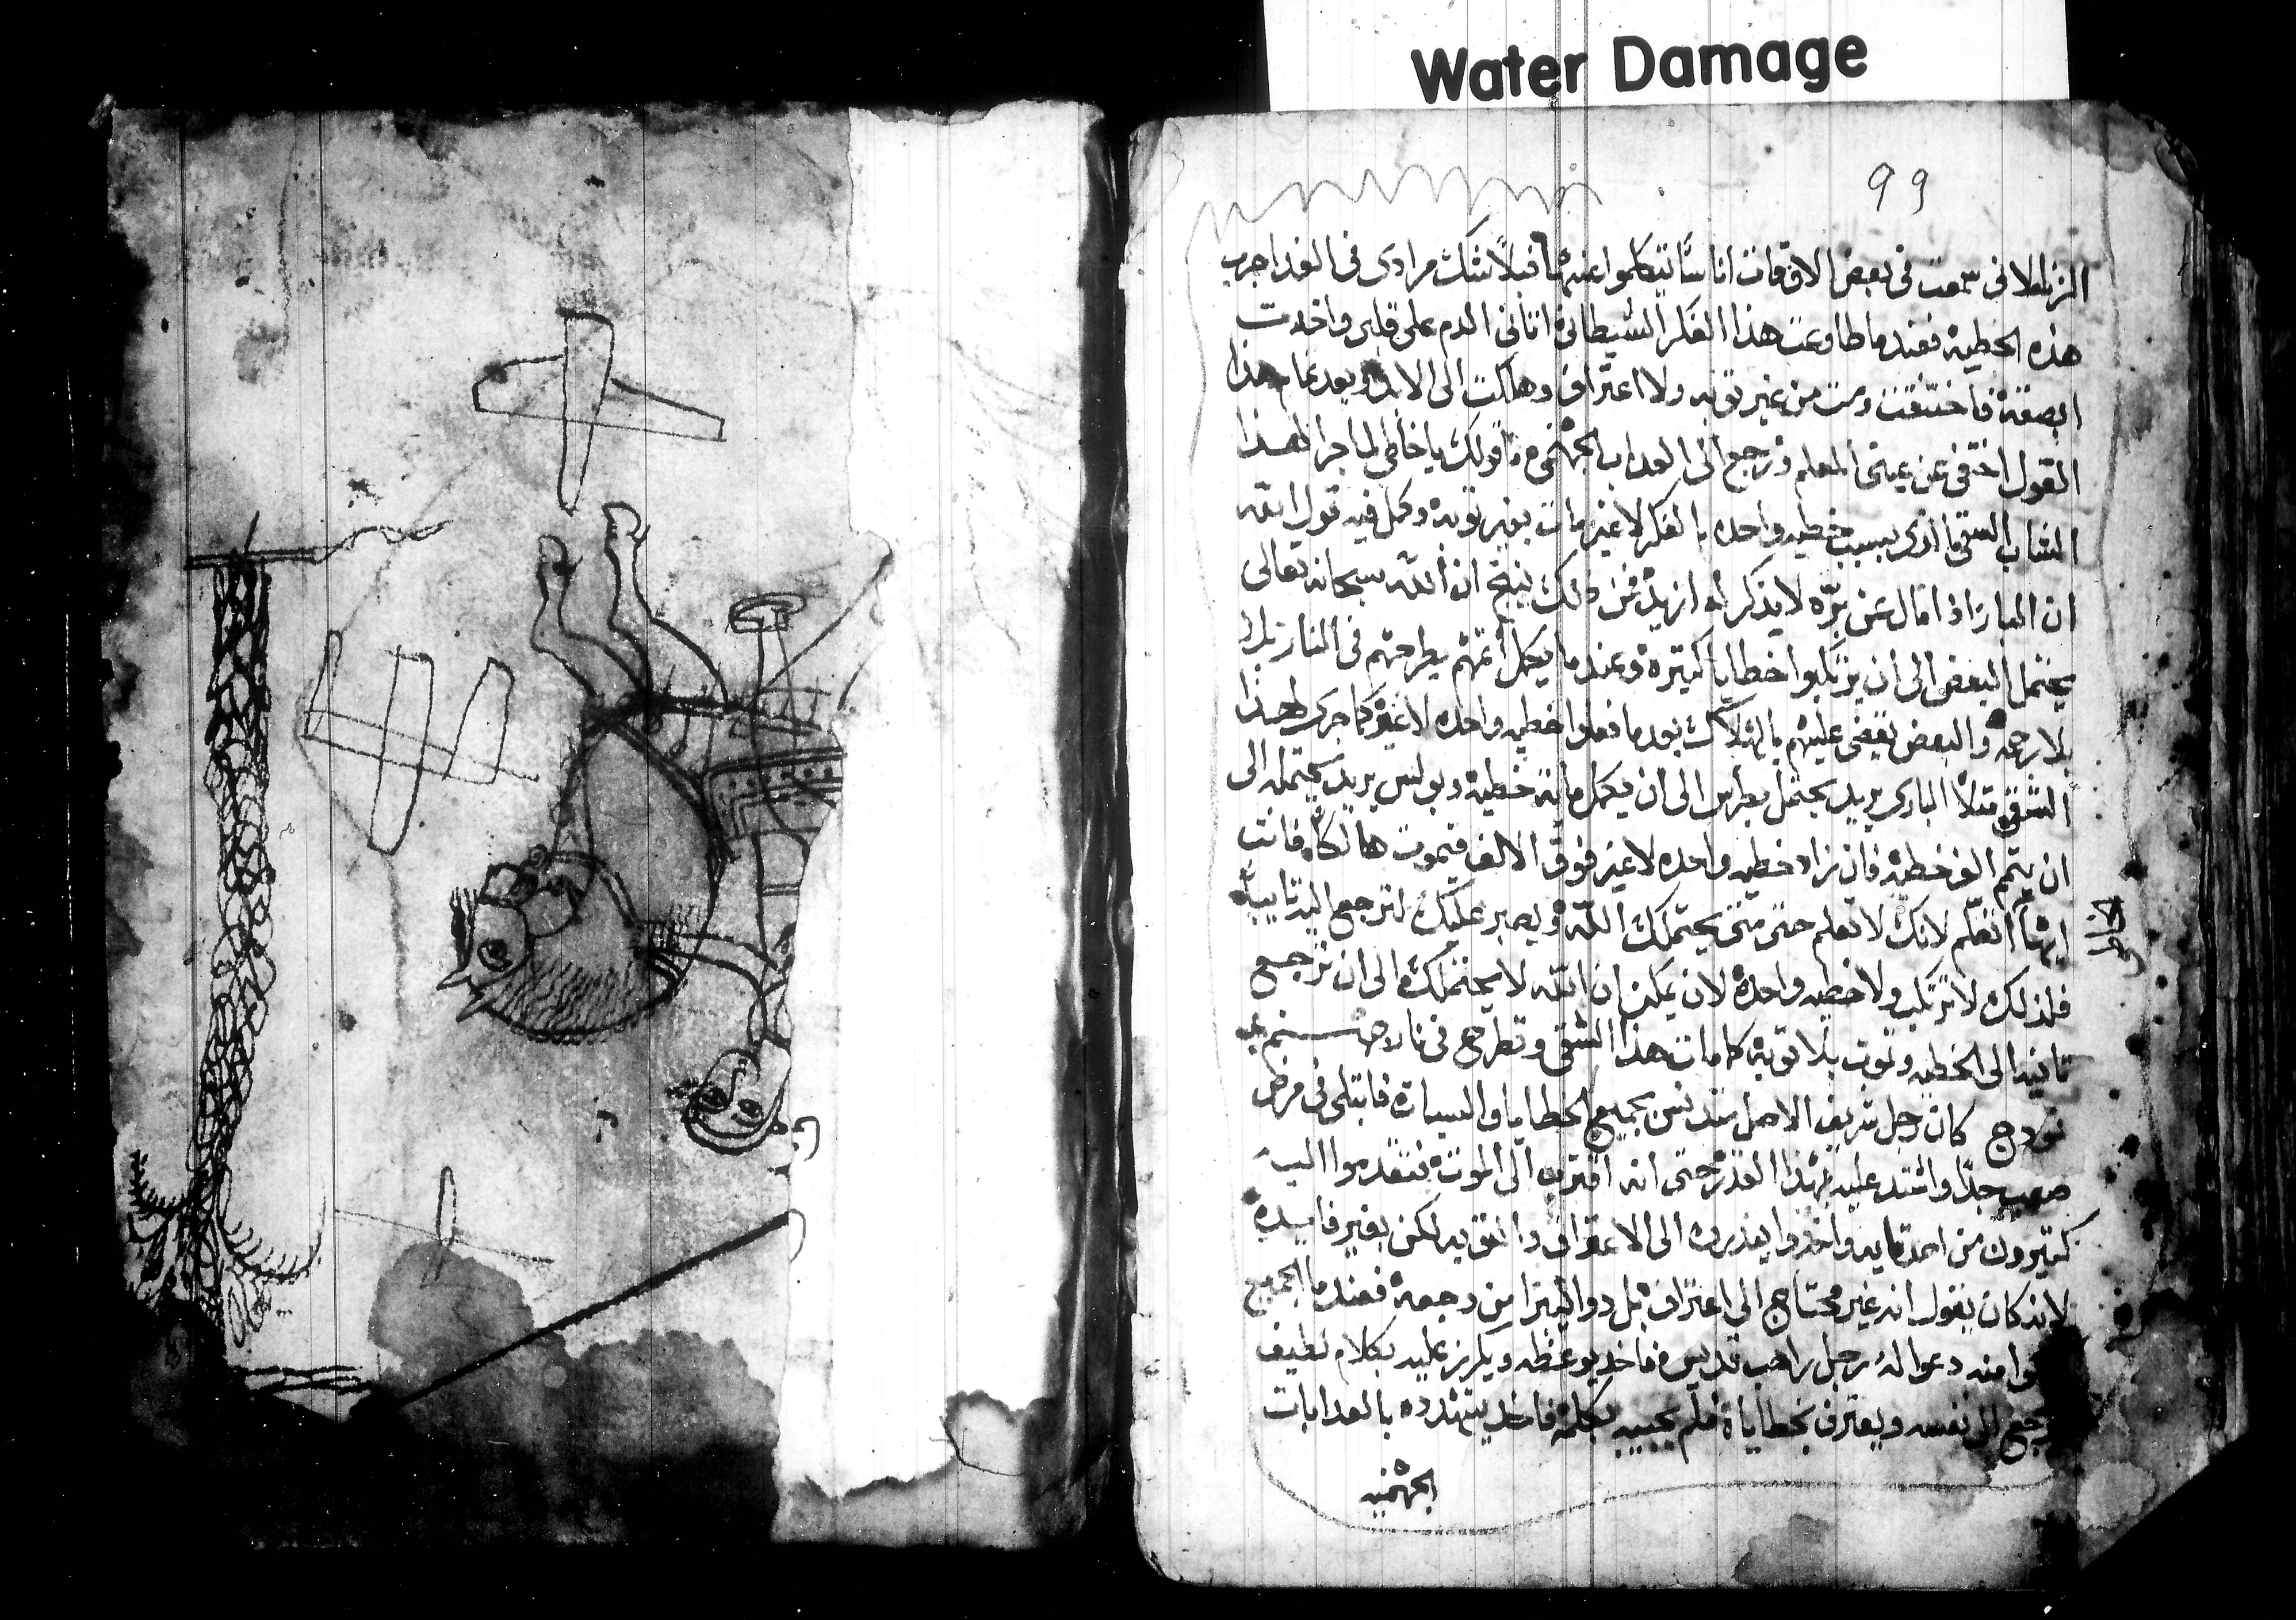 Water Damage
99
الزنا لاني سمعت في بعض الاوقات اناسًا يتكلموا عنها قبلاً شك مرادى في الغد اجرب
هذه الخطيه فعندما طاوعت هذا الفكر الشيطاني اتاني الدم على قلبي واخدت
ابصقه فاختنقت ومت من غير توبه ولا اعتراف وهلكت الى الابد وبعد تمام هذا
القول اختفى عن عينى المعلم ورجع الى العداب الجهنمي ما قولك يا خاطي لما جرا لهدا
الشاب الشقي الذى بسبب خطيه واحده بالفكر لا غير مات بغير توبه وكمل فيه قول الله
ان البار اذا مال عن بره لا يذكر له ازيد من دلك ينبغي ان الله سبحانه تعالى
يحتمل البعض الى ان يرتكبوا خطايا كتيرة وعندما يكمل اتمهم يطرحهم في النار
بلا رحمه والبعض يقضى عليهم بالهلاك بعد ما فعلوا خطيه واحده لا غير كما جرى لهذا
الشقي متلاً البارى يريد يحتمل بطرس الى ان يكمل ماية خطية وبولس يريد يحتمله الى
ان يتمم الف خطيه فان زاد خطيه واحده لا غير فوق الالف فيموت هالكاً فانت
ايها لانك لا تعلم حتى متى يحتملك الله ويصبر عليك لترجع اليه تايباً
الخاطي
فلذلك لا ترتكب ولا خطيه واحدة لان يمكن ان الله لا يحتملك الى ان ترجع
تانيه الى الخطيه وتموت بلا توبه كما مات هذا الشقي وتطرح في نار جهنم
نمودج كان رجل شريف الاصل متدنس بجميع الخطايا والسيات فابتلى في مرض
صعب جدًا واشتد عليه بهذا القدر حتى انه اقترب الى الموت فتقدموا اليه
كتيرون من اصدقايه واخدوا يندروه الى الاعتراف والتوبه لكن بغير فايده
لانه كان يقول انه غير محتاج الى اعتراف بل دوا ليبرا من وجعه فعندما الجميع
منه دعوا له رجل راهب قديس فاخد يوعظه ويكرز عليه بكلام لطيف
يرجع الى نفسه ويعترف بخطاياه فلم يجيبه بكلمه فاخد يتهدده بالعدابات
الجهنميه